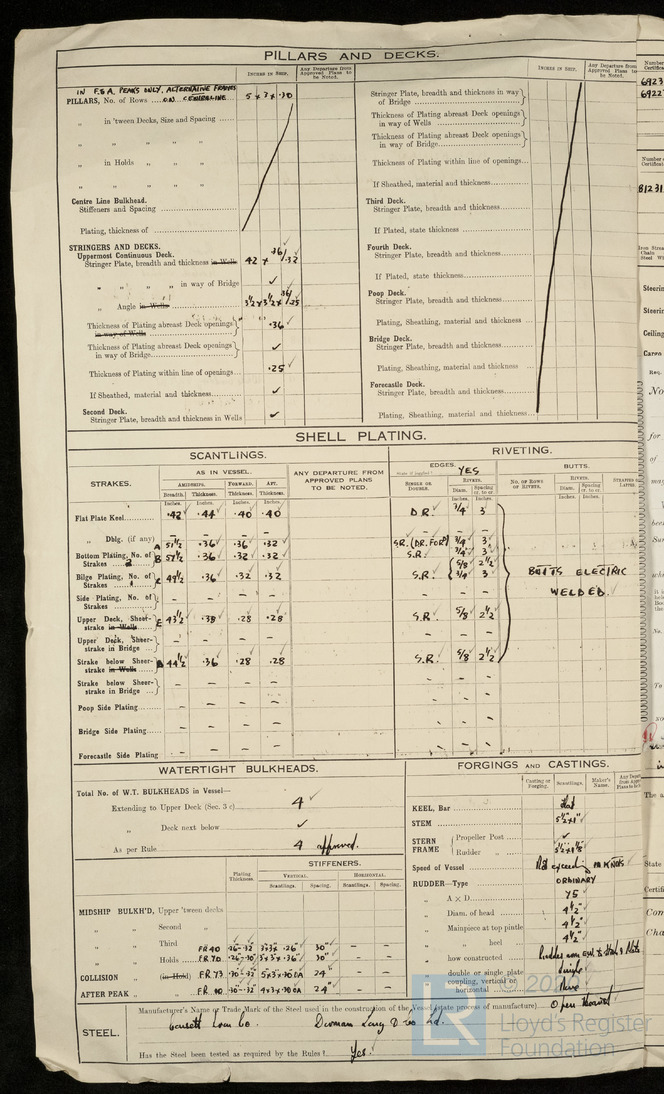 PILLARS AND DECKS.
INCHES IN SHIP.
Any Departure from Approved Plans to be Noted.
IN F.& A. PEAKS ONLY, ALTERNATIVE FRAMES
PILLARS, No. of Rows ... ON CENTRELINE 5 x 3 x .30
„ in 'tween Decks, Size and Spacing
„ „ „ „
„ in Holds „ „
„ „ „ „
Centre Line Bulkhead.
Stiffeners and Spacing
Plating, thickness of
STRINGERS AND DECKS.
Uppermost Continuous Deck.
Stringer Plate, breadth and thickness in Wells 42 x .36/.32
„ „ „ „ in way of Bridge ✓
„ Angle in Wells 3½ x 3½ x .36/.25
Thickness of Plating abreast Deck openings in way of Wells .36
Thickness of Plating abreast Deck openings in way of Bridge ✓
Thickness of Plating within line of openings .25 ✓
If Sheathed, material and thickness ✓
Second Deck.
Stringer Plate, breadth and thickness in Wells ✓
INCHES IN SHIP.
Any Departure from Approved Plans to be Noted.
Stringer Plate, breadth and thickness in way of Bridge
Thickness of Plating abreast Deck openings in way of Wells
Thickness of Plating abreast Deck openings in way of Bridge
Thickness of Plating within line of openings
If Sheathed, material and thickness
Third Deck.
Stringer Plate, breadth and thickness
If Plated, state thickness
Fourth Deck.
Stringer Plate, breadth and thickness
If Plated, state thickness
Poop Deck.
Stringer Plate, breadth and thickness
Plating, Sheathing, material and thickness
Bridge Deck.
Stringer Plate, breadth and thickness
Plating, Sheathing, material and thickness
Forecastle Deck.
Stringer Plate, breadth and thickness
Plating, Sheathing, material and thickness
SHELL PLATING.
SCANTLINGS.
RIVETING.
STRAKES.
AS IN VESSEL.
AMIDSHIPS. FORWARD. AFT.
Breadth. Thickness. Thickness. Thickness.
Inches. Inches. Inches. Inches.
ANY DEPARTURE FROM APPROVED PLANS TO BE NOTED.
EDGES. YES
SINGLE OR DOUBLE.
RIVETS.
Diam. Spacing cr. to cr.
Inches. Inches.
BUTTS.
NO. OF ROWS OF RIVETS.
RIVETS.
Diam. Spacing cr. to cr.
Inches. Inches.
Flat Plate Keel 42 .44 .40 .40 D.R. 3/4 3
„ Dblg. (if any) – – – – – – –
Bottom Plating, No. of Strakes 2 A 51½ .36 .36 .32 S.R. (D.R. FORD) 3/4 3
B 57½ .36 .32 .32 S.R. 3/4 3
Bilge Plating, No. of Strakes 1 C 49½ .36 .32 .32 S.R. 5/8 2½ 3/4 3
BUTTS ELECTRIC
WELDED.
Side Plating, No. of Strakes – – – – – – –
Upper Deck, Sheer-strake in Wells E 43½ .38 .28 .28 S.R. 5/8 2½
Upper Deck, Sheer-strake in Bridge – – – – – – –
Strake below Sheer-strake in Wells D 44½ .36 .28 .28 S.R. 5/8 2½
Strake below Sheer-strake in Bridge – – – – – –
Poop Side Plating – – – – – –
Bridge Side Plating – – – – – –
Forecastle Side Plating – – – – – –
WATERTIGHT BULKHEADS.
Total No. of W.T. BULKHEADS in Vessel—
Extending to Upper Deck (Sec. 3 c) 4 ✓
„ Deck next below ✓
As per Rule 4 approved.
STIFFENERS.
Plating Thickness
VERTICAL. HORIZONTAL.
Scantlings. Spacing. Scantlings. Spacing.
MIDSHIP BULKH'D, Upper 'tween decks
„ „ Second „
„ „ Third „ FR 40 .26-.32 3x3x .26 30" – –
„ „ Holds FR 70 .26-.30 30" – –
COLLISION „ (in Hold) FR 73 .30-.32 5x3x.30 OA 24" – –
AFTER PEAK „ „ FR 10 .30-.32 4x3x.30 OA 24" – –
FORGINGS AND CASTINGS.
Casting or Forging. Scantlings. Maker's Name.
KEEL, Bar Flat
STEM 5½"x1"
STERN FRAME Propeller Post ✓
Rudder „ 5½"x1⅝
Speed of Vessel Not exceeding 10 KNOTS
RUDDER—Type ORDINARY
„ A × D 75
„ Diam. of head 4½"
„ Mainpiece at top pintle 4½"
„ „ heel 4½"
„ how constructed
„ double or single plate Single
„ coupling, vertical or horizontal
STEEL.
Manufacturer's Name or Trade Mark of the Steel used in the construction of the Vessel (state process of manufacture) Open Hearth
Consett Iron Co. Dorman Long & Co Ld.
Has the Steel been tested as required by the Rules? Yes.
© 20
Lloyd's Register
Foundation
LR